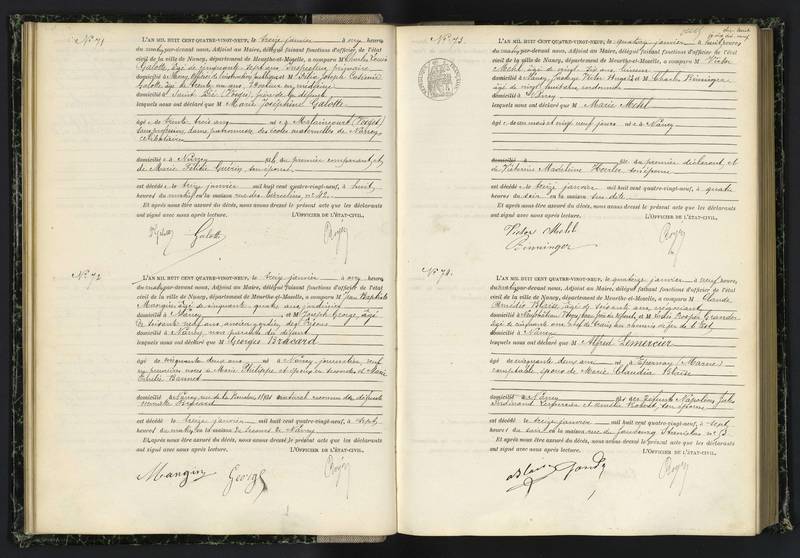 N° 71
L'AN MIL HUIT CENT QUATRE-VINGT-NEUF, le treize janvier à onze heures
du matin, par-devant nous, Adjoint au Maire, délégué faisant fonctions d'officier de l'état
civil de la ville de Nancy, département de Meurthe-et-Moselle, a comparu M Charles Louis
Galotte, âgé de cinquante sept ans, Inspecteur primaire
domicilié à et M Joseph
Galotte, âgé de trente un ans, Docteur en médecine
domicilié à Saint Dié (Vosges), frère de la défunte
lesquels nous ont déclaré que M Marie Joséphine Galotte
âgée de trente trois ans né à Mattaincourt (Vosges)
sans profession, dame patronnesse des écoles maternelles de Nancy,
célibataire
domiciliée à Nancy fille du premier comparant, et
de Marie Félicie Guérin, son épouse
est décédée le treize janvier mil huit cent quatre-vingt-neuf, à huit
heures du matin, en la maison rue n° 42
Et après nous être assuré du décès, nous avons dressé le présent acte que les déclarants
ont signé avec nous après lecture. L'OFFICIER DE L'ÉTAT-CIVIL.
Galotte
N° 72
L'AN MIL HUIT CENT QUATRE-VINGT-NEUF, le treize janvier à onze heures
du matin, par-devant nous, Adjoint au Maire, délégué faisant fonctions d'officier de l'état
civil de la ville de Nancy, département de Meurthe-et-Moselle, a comparu M Jean Baptiste
Mangin, âgé de cinquante quatre ans, jardinier
domicilié à Nancy et M Joseph George, âgé
de soixante neuf ans, ancien gardien des Prisons
domicilié à Nancy, non parents du défunt
lesquels nous ont déclaré que M Georges Bracard
âgé de soixante deux ans né à Nancy, journalier, veuf
en premières noces de Marie Philippe et époux en secondes de Marie
Emilie Bannet
domicilié à Nancy, rue de la fils naturel reconnu de défunte
Bracard
est décédé le treize janvier mil huit cent quatre-vingt-neuf, à sept
heures du matin, en la maison de secours de Nancy
Et après nous être assuré du décès, nous avons dressé le présent acte que les déclarants
ont signé avec nous après lecture. L'OFFICIER DE L'ÉTAT-CIVIL.
Mangin George
N° 73
L'AN MIL HUIT CENT QUATRE-VINGT-NEUF, le quatorze janvier à huit heures
du matin, par-devant nous, Adjoint au Maire, délégué faisant fonctions d'officier de l'état
civil de la ville de Nancy, département de Meurthe-et-Moselle, a comparu M Victor
Mehl, âgé de vingt six ans,
domicilié à Nancy, passage Victor Hugo et M Charles Binninger
âgé de vingt huit ans, cordonnier
domicilié à Nancy
lesquels nous ont déclaré que M Marie Mehl
âgée de un mois et vingt neuf jours né à Nancy
domicilié à fille du premier déclarant, et
de Victorine Madeleine son épouse
est décédée le treize janvier mil huit cent quatre-vingt-neuf, à quatre
heures du soir, en la maison sus-dite
Et après nous être assuré du décès, nous avons dressé le présent acte que les déclarants
ont signé avec nous après lecture. L'OFFICIER DE L'ÉTAT-CIVIL.
Victor Mehl
Binninger
N° 74
L'AN MIL HUIT CENT QUATRE-VINGT-NEUF, le quatorze janvier à neuf heures
du matin, par-devant nous, Adjoint au Maire, délégué faisant fonctions d'officier de l'état
civil de la ville de Nancy, département de Meurthe-et-Moselle, a comparu M Claude
Amédée Blaise, âgé de soixante ans, négociant
domicilié à Neufchâteau (Vosges), beau-père du défunt, et M Prosper
âgé de cinquante ans, chef de trains au chemin de fer de l'Est
domicilié à Nancy
lesquels nous ont déclaré que M Alfred Lemercier
âgé de cinquante deux ans né à Epernay (Marne)
comptable, époux de Marie Claudia Blaise
domicilié à Nancy fils des défunts Napoléon Jules
Ferdinand Lemercier et Amélie son épouse
est décédé le treize janvier mil huit cent quatre-vingt-neuf, à sept
heures du soir, en la maison rue du faubourg Stanislas n° 3
Et après nous être assuré du décès, nous avons dressé le présent acte que les déclarants
ont signé avec nous après lecture. L'OFFICIER DE L'ÉTAT-CIVIL.